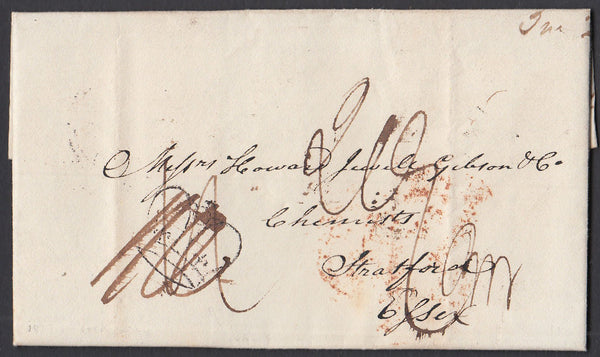 Messrs Howard Jewell Gibson & Co.
Chemists
Stratford
Essex